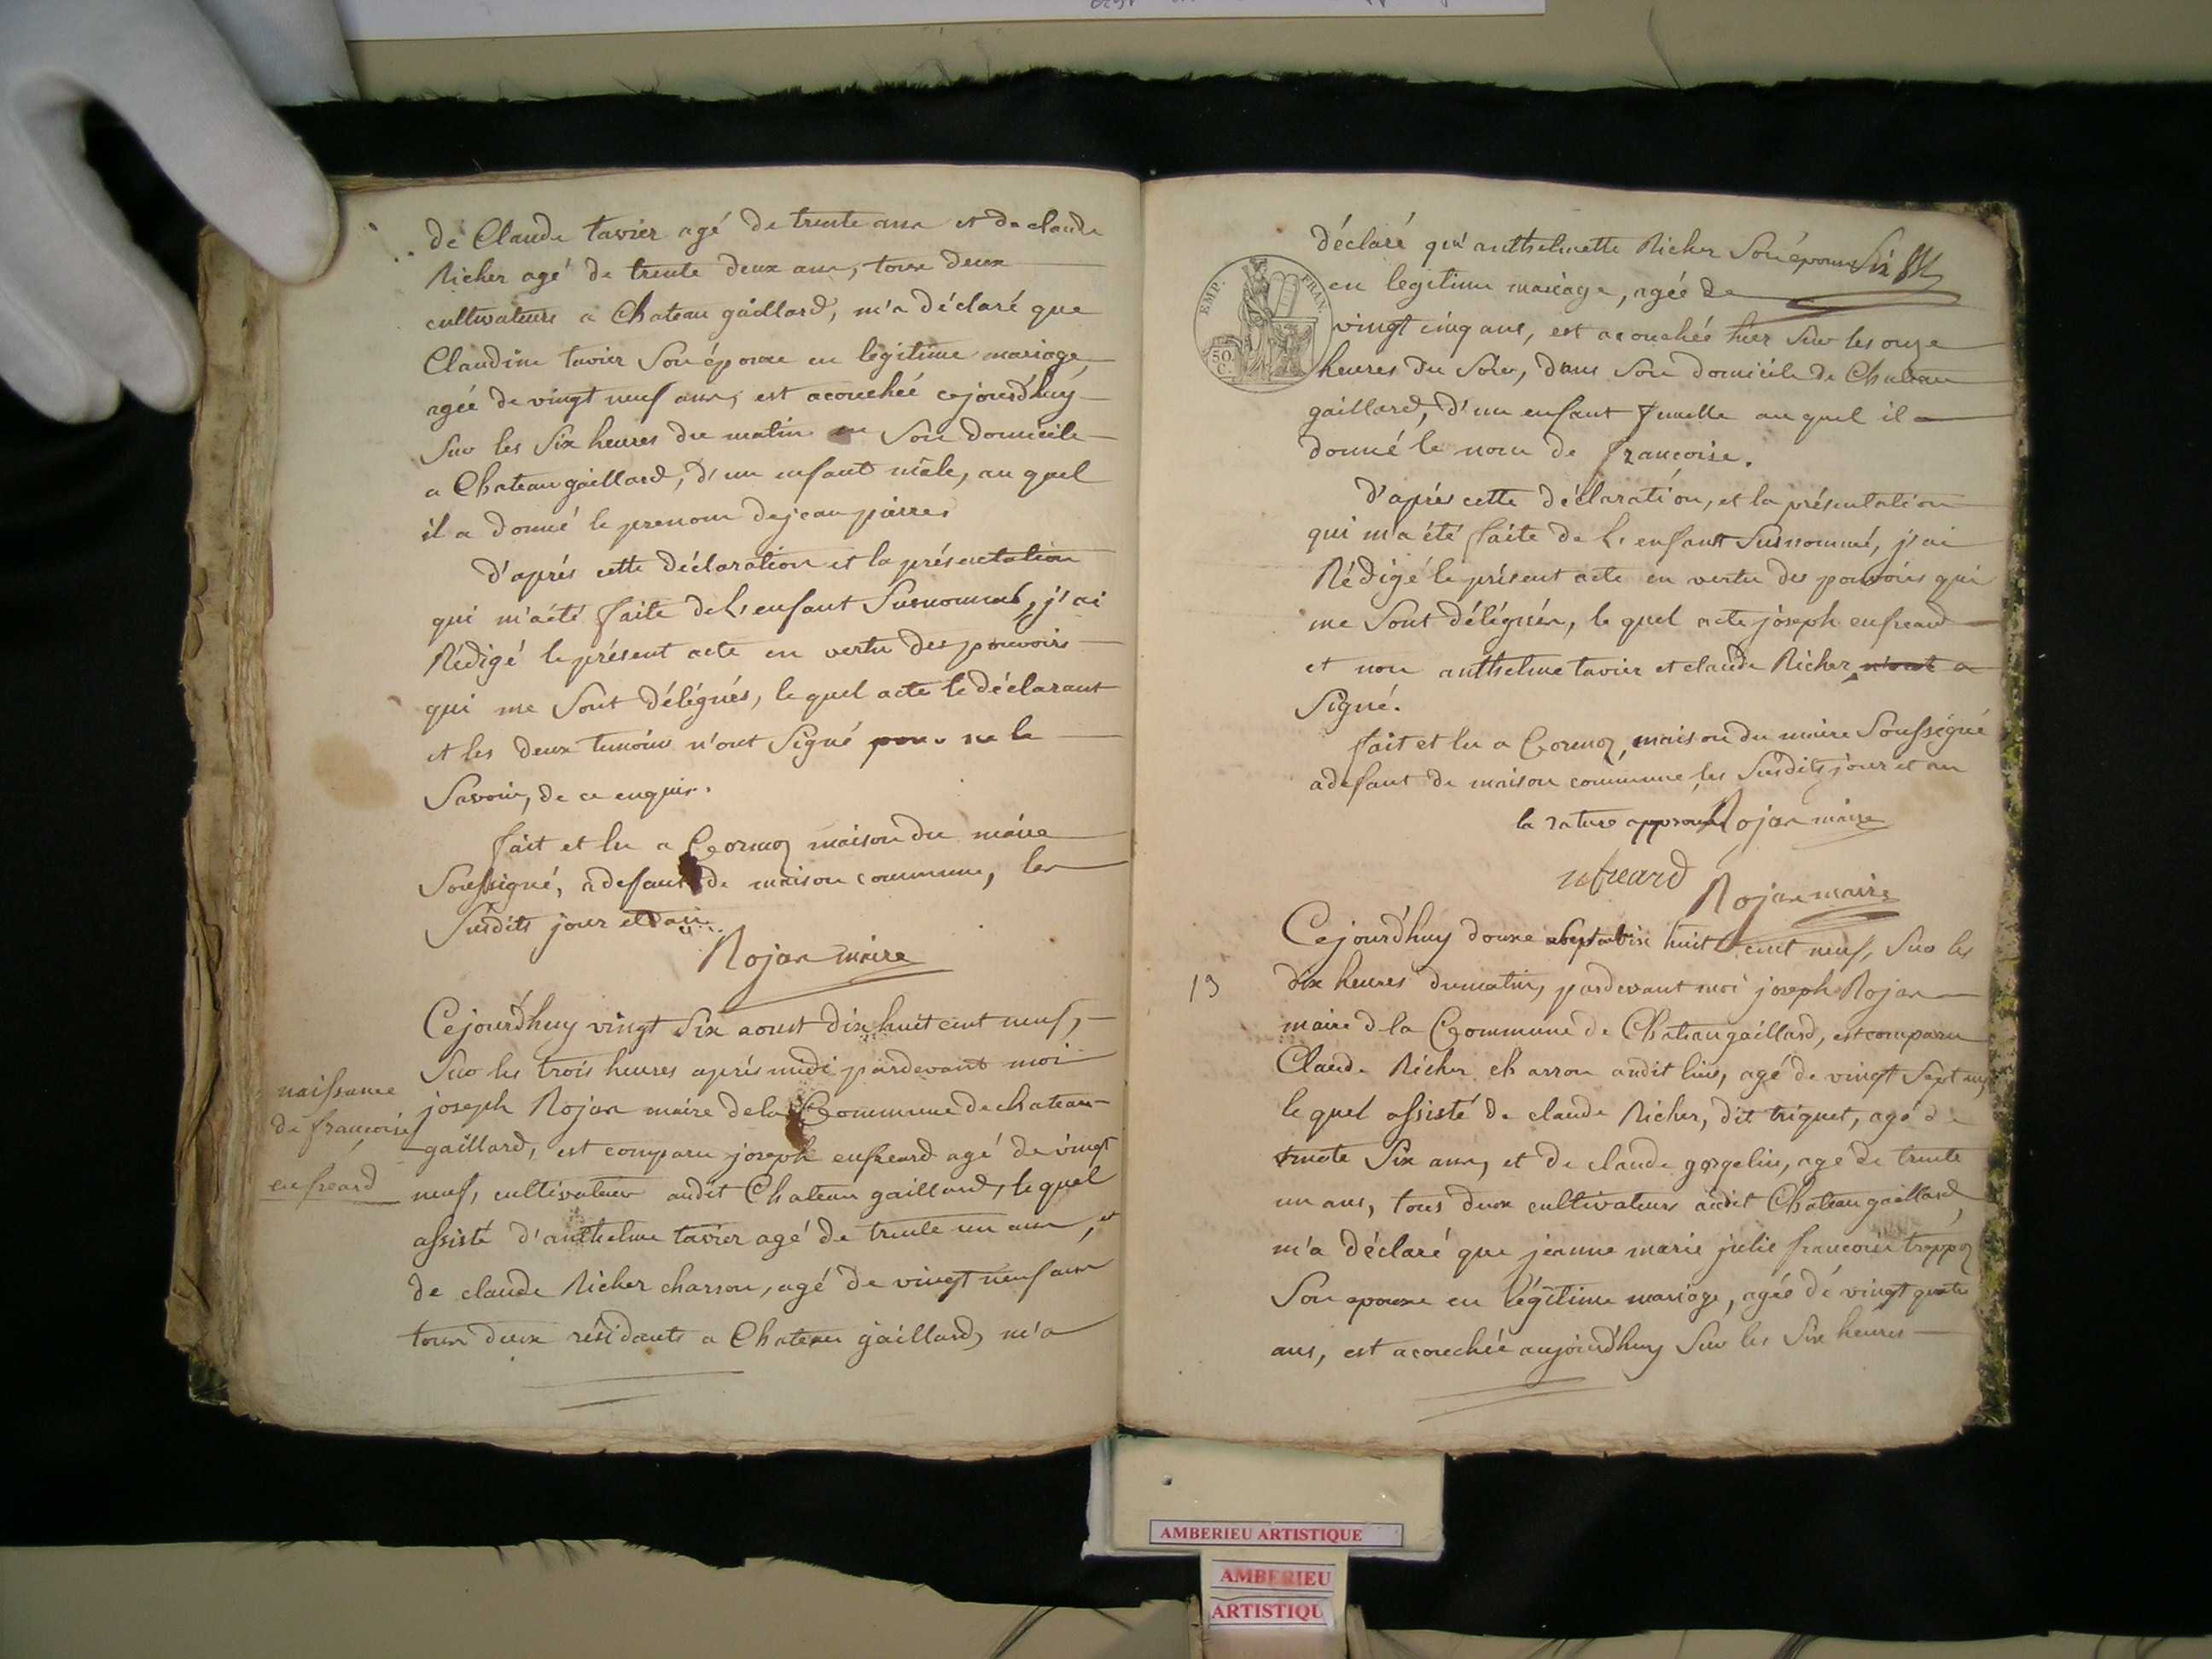 de Claude tavier agé de trente ans et de claude
Richer agé de trente deux ans, tous deux
cultivateurs a Chateau gaillard, m'a déclaré que
Claudine tavier Son épouse en legitime mariage,
agée de vingt neuf ans, est acouchée cejourd'huy
Sur les Six heures du matin en Son domicile
a Chateau gaillard, d'un enfant mâle, au quel
il a donné le prenom de jean pierre
d'aprés cette déclaration et la présentation
qui m'a été faite de l'enfant Susnommé, j'ai
Rédigé le présent acte en vertu des pouvoirs
qui me Sont délégués, le quel acte le déclarant
et les deux temoins n'ont Signé pour ne le
Savoir, de ce enquis.
fait et lu a Cormoz maison du maire
Soussigné, a defaut de maison commune, les
Susdits jour et an
Rojan maire
Cejourd'huy vingt Six aoust dix huit cent neuf,
Sur les trois heures aprés midi pardevant moi
joseph Rojan maire de la Commune de chateau-
gaillard, est comparu joseph enfreard agé de vingt
neuf, cultivateur audit Chateau gaillard, le quel
assisté d'anthelme tavier agé de trente un ans, et
de claude Richer charron, agé de vingt neuf ans
tous deux résidants a Chateau gaillard, m'a
naissance
de francoise
enfreard
déclaré qu'anthelmette Richer Son épouse Six
en legitime mariage, agée de
vingt cinq ans, est acouchée hier Sur les onze
heures du Soir, dans Son domicile de Chateau
gaillard, d'un enfant femelle au quel il a
donné le nom de francoise.
d'aprés cette déclaration, et la présentation
qui m'a été faite de l'enfant Susnommé, j'ai
Rédigé le présent acte en vertu des pouvoirs qui
me Sont délégués, le quel acte joseph enfreard
et non anthelme tavier et claude Richer n'ont a
Signé.
fait et lu a Cormoz, maison du maire Soussigné
a defaut de maison commune, les Susdits jour et an
la rature approuvée Rojan maire
enfreard
Rojan maire
EMP. FRAN.
50 C.
Cejourd'huy douze Septembre huit cent neuf, Sur les
13
dix heures du matin, pardevant moi joseph Rojan
maire de la Commune de Chateaugaillard, est comparu
Claude Richer charron audit lieu, agé de vingt Sept ans,
le quel assisté de claude Richer, dit triquet, agé de
trente Six ans, et de claude gorgelin, agé de trente
un ans, tous deux cultivateurs audit Chateau gaillard,
m'a déclaré que jeanne marie julie francoise troppoz
Son epouse en légitime mariage, agée de vingt quatre
ans, est acouchée aujourd'huy Sur les Six heures
AMBERIEU ARTISTIQUE
AMBERIEU
ARTISTIQU